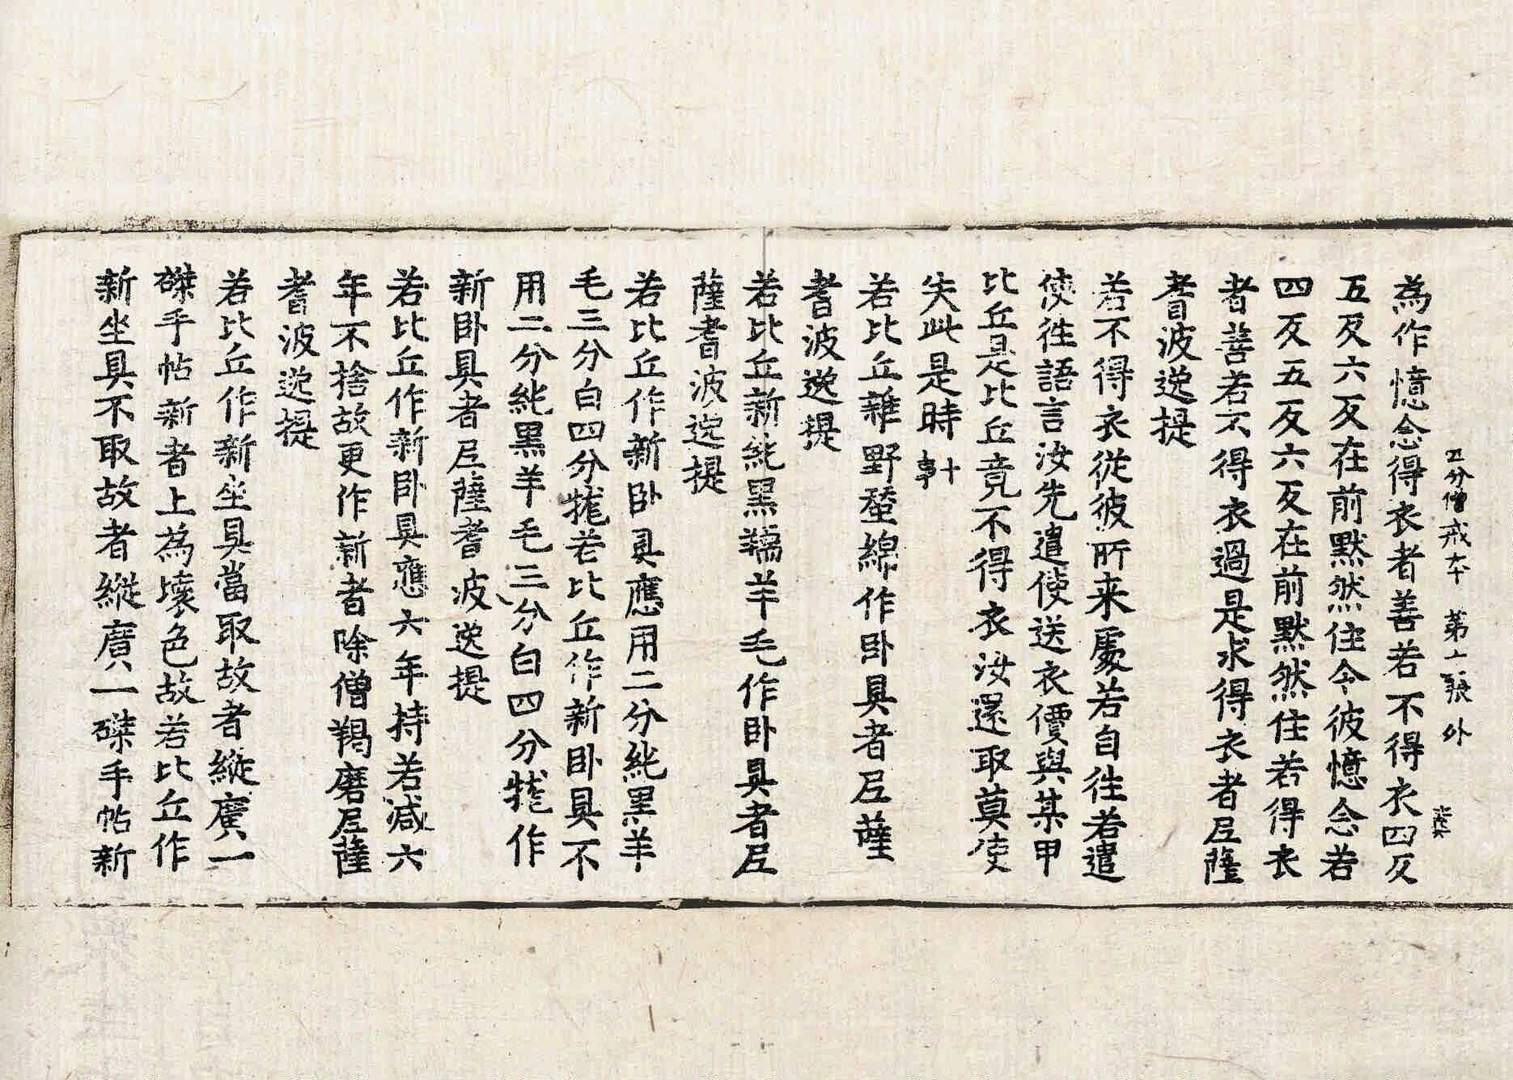 五分僧戒本　第十一張　外
為作憶念得衣者善若不得衣四反
五反六反在前默然住令彼憶念若
四反五反六反在前默然住若得衣
者善若不得衣過是求得衣者尼薩
耆波逸提
若不得衣從彼所来處若自往若遣
使往語言汝先遣使送衣價與某甲
比丘是比丘竟不得衣汝還取莫使
失此是時十事
若比丘雜野蚕綿作卧具者尼薩
耆波逸提
若比丘新純黑羺羊毛作卧具者尼
薩耆波逸提
若比丘作新卧具應用二分純黑羊
毛三分白四分牻若比丘作新卧具不
用二分純黑羊毛三分白四分牻作
新卧具者尼薩耆波逸提
若比丘作新卧具應六年持若減六
年不捨故更作新者除僧羯磨尼薩
耆波逸提
若比丘作新坐具當取故者縱廣一
磔手帖新者上為壞色故若比丘作
新坐具不取故者縱廣一磔手帖新